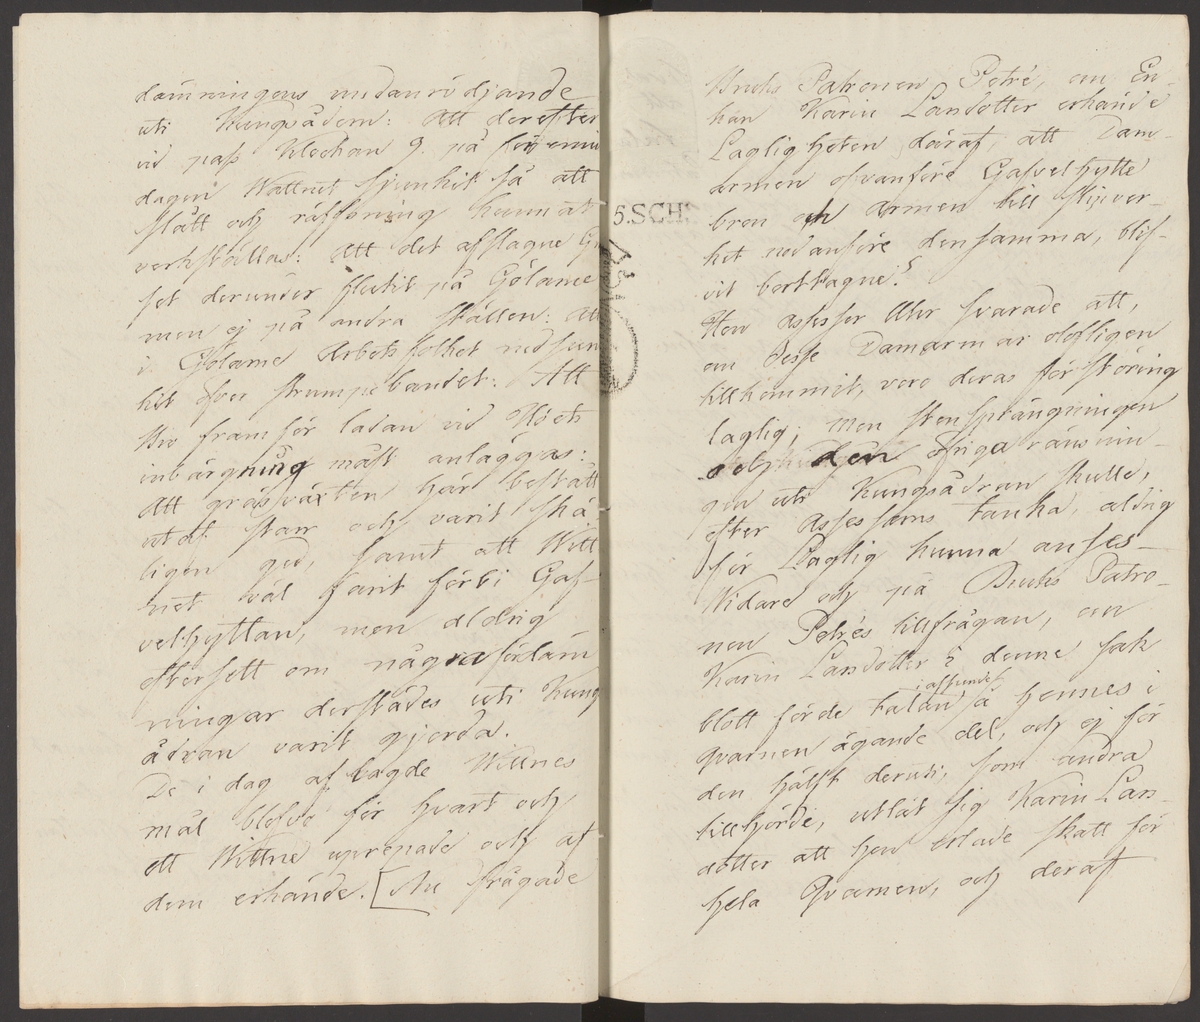 dämningens undanrödjande
uti Kungsådern: Att derefter
vid pass Klockan 9. på förenämnde
dagen Wattnet sjunkit så att
slått och räfsning kunnat
verkställas: Att det afslagne Grä
set derunder flutit på Gölarne
men ej på andra ställen: Att
i Gölarne Arbetsfolket nedsjun
kit öfver strumpebandet: Att
bro framför ladan vid Höets
inbärgning måst anläggas:
Att gräsväxten här bestått
utaf starr och varit ska
ligen god, samt att Witt
net väl farit förbi Gaf-
velhyttan, men aldrig
eftersett om några fördäm
ningar derstädes uti Kungs
ådran varit gjorda.
De i dag aflagde Wittnes
mål blefvo för hvart och
ett Wittne uprepade och af
dem erkände. [Nu frågade
Bruks Patronen Petré, om En-
kan Karin Larsdotter erkände
Lagligheten däraf, att Dam-
armen ofvanföre Gafvelhytte
bron och Armen till skifver-
ket nedanföre densamma, blif-
vit borttagne?
Herr Assessor Uhr svarade att,
om desse Damarmar olofligen
tillkommit, vore deras förstöring
laglig; men stensprängningen
och den öfriga ränsnin-
gen uti Kungsådran skulle,
efter Assessorns tanka, aldrig
för Laglig kunna anses-
Widare och på Bruks Patro-
nen Petrés tillfrågan, om
Karin Larsdotter i denne sak
blott förde talan i afseende å hennes i
Qvarnen ägande del, och ej för
den hälft deruti, som andra
tillhörde, utlät sig Karin Lars-
dotter att hon erlade skatt för
hela Qvarnen, och deraf
5.SCH: